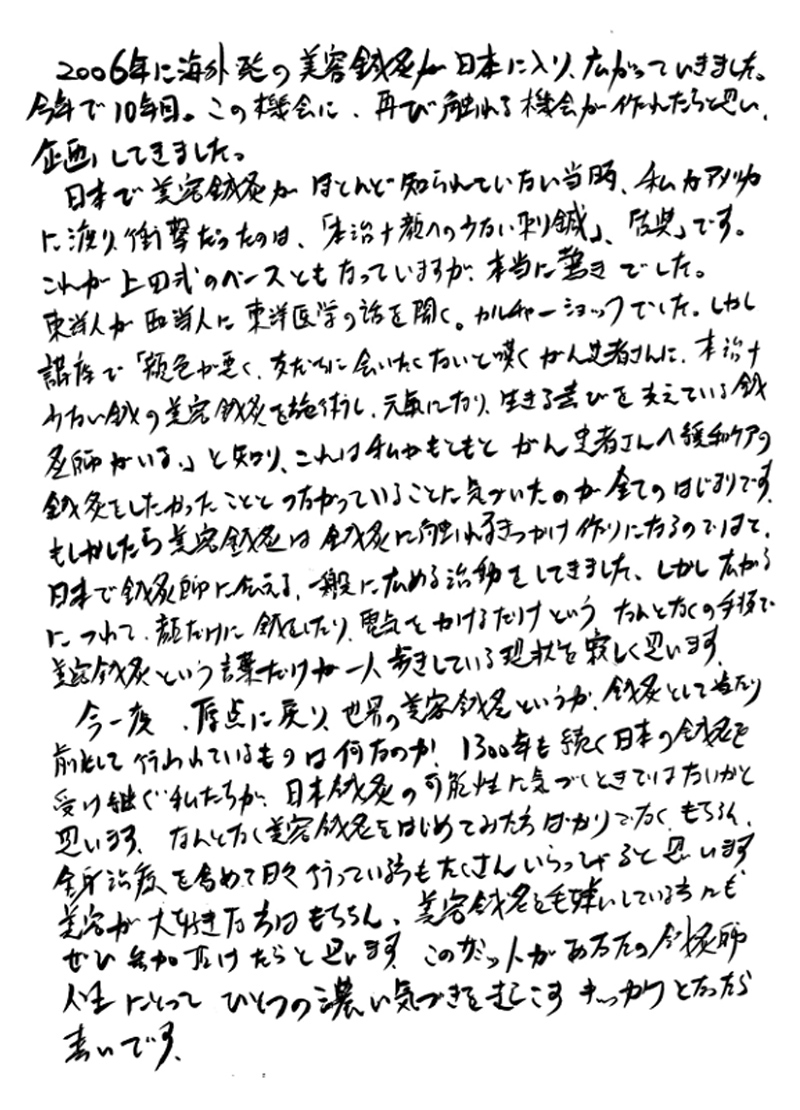 2006年に海外発の美容鍼灸が日本に入り、広がっていきました。
今年で10年目。この機会に、再び触れる機会が作れたらと思い、
企画してきました。
日本で美容鍼灸がほとんど知られていない当時、私がアメリカ
に渡り、衝撃だったのは、「本治+顔への少ない刺鍼」、「古典」です。
これが上田式のベースともなっていますが、本当に驚きでした。
東洋人が西洋人に東洋医学の話を聞く。カルチャーショックでした。しかし
講座で「顔色が悪く、友だちに会いたくないと嘆くがん患者さんに、本治+
少ない鍼の美容鍼灸を施術し、元気になり、生きる喜びを支えている鍼
灸師がいる。」と知り、これは私がもともとがん患者さんへ緩和ケアの
鍼灸をしたかったこととつながっていることに気づいたのが全てのはじまりです。
もしかしたら美容鍼灸は鍼灸に触れるきっかけ作りになるのではて、
日本で鍼灸師に伝える、一般に広める活動をしてきました。しかし広がる
につれて、顔だけに鍼をしたり、電気をかけるだけという なんとなくの手技で
美容鍼灸という言葉だけが一人歩きしている現状を寂しく思います。
今一度、原点に戻り、世界の美容鍼灸というか、鍼灸として当たり
前として行われているものは何なのか! 1300年も続く日本の鍼灸を
受け継ぐ私たちが、日本鍼灸の可能性に気づくときではないかと
思います。なんとなく美容鍼灸をはじめてみた方ばかりでなく、もちろん、
全身治療を含めて日々行っている方もたくさんいらっしゃると思います。
美容が大好きな方はもちろん、美容鍼灸を毛嫌いしている方にも
ぜひ参加頂けたらと思います。このサミットがあなたの鍼灸師
人生にとってひとつの濃い気づきを起こすきっかけとなったら
幸いです。